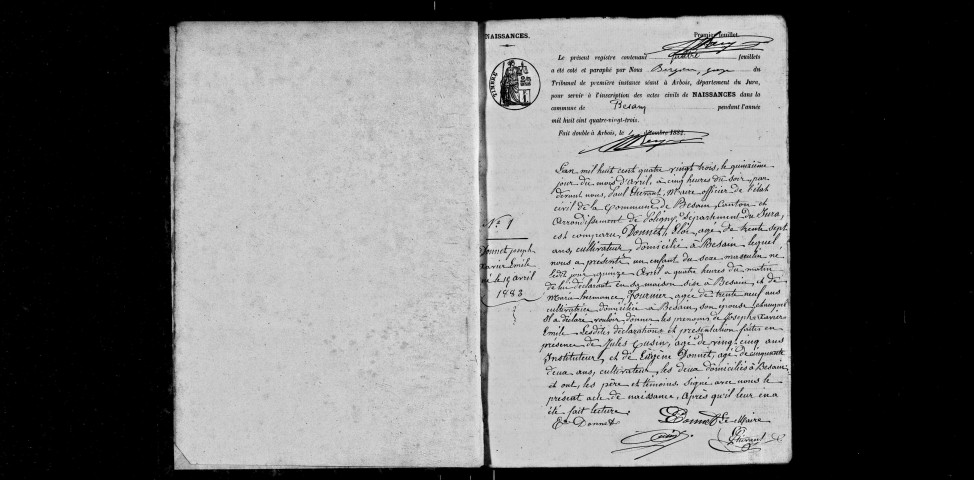 NAISSANCES.
Premier feuillet.
Le présent registre contenant quatre feuillets
a été coté et paraphé par Nous juge du
Tribunal de première instance séant à Arbois, département du Jura,
pour servir à l'inscription des actes civils de NAISSANCES dans la
commune de Besain pendant l'année
mil huit cent quatre-vingt-trois.
Fait double à Arbois, le
TIMBRE
L'an mil huit cent quatre vingt trois, le quinzième
jour du mois d'avril, à cinq heures du soir, par
devant nous, Paul Thevant, Maire officier de l'état
civil de la Commune de Besain, Canton et
Arrondissement de Poligny, département du Jura,
est comparu, Donnet, Eloi, agé de trente sept
ans, cultivateur, domicilié à Besain lequel
nous a présenté un enfant du sexe masculin né
ledit jour quinze Avril a quatre heures du matin
de lui déclarant en sa maison sise à Besain, et de
Maria Fournier, agée de trente neuf ans
cultivatrice domiciliée à Besain, son épouse
Il a déclaré vouloir donner les prénoms de Joseph Xavier
Emile. Lesdites déclaration et présentation faites en
présence de Jules Cusin, agé de vingt cinq ans
Instituteur, et de Eugène Donnet, agé de cinquante
deux ans, cultivateur, les deux domiciliés à Besain,
et ont, les père et témoins, signé avec nous le
présent acte de naissance, Après qu'il leur en a
été fait lecture
N° 1
Donnet Joseph
Xavier Emile
né le 15 avril
1883
Donnet Donnet Le Maire